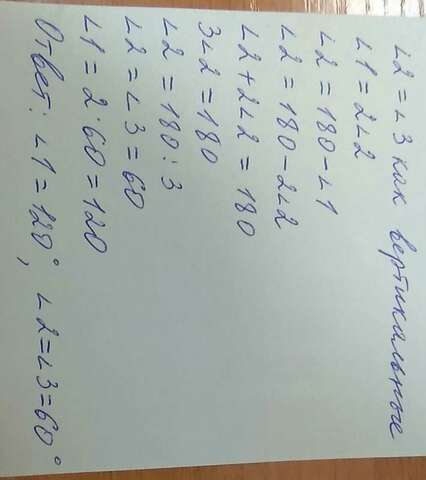 ∠2 = ∠3 как вертикальные
∠1 = 2∠2
∠2 = 180 - ∠1
∠2 = 180 - 2∠2
∠2 + 2∠2 = 180
3∠2 = 180
∠2 = 180 : 3
∠2 = ∠3 = 60
∠1 = 2·60 = 120
Ответ: ∠1 = 120°, ∠2 = ∠3 = 60°